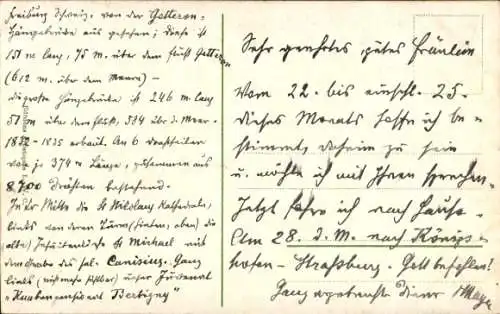 Freiburg Schweiz. von der Gotteron-
Hängebrücke aus gesehen; diese ist
151 m lang, 75 m. über dem Fluß Gotteron
(612 m. über dem Meere) –
die große Hängebrücke ist 246 m. lang
51 m über dem Fluß, 584 über d. Meer.
1832-1835 erbaut. An 6 Drahtseilen
von je 374 m Länge, zusammen aus
Drähten bestehend.
In der Mitte die St Nikolaus Kathedrale,
links von deren Turm (hinten, oben) die
alte St Michael mit
dem Grabe des sel. Canisius. Ganz
links (nicht mehr sichtbar) unser
"Knabenpensionat Bertigny"
Sehr geehrtes, gutes Fräulein
Vom 22. bis einschl. 25.
dieses Monats hoffe ich be-
stimmt, daheim zu sein
u. möchte ich mit Ihnen sprechen.
Jetzt fahre ich nach Hause.
Am 28. d. M. nach Königs-
hofen – Straßburg. Gott befohlen!
Ganz ergebenster Diener